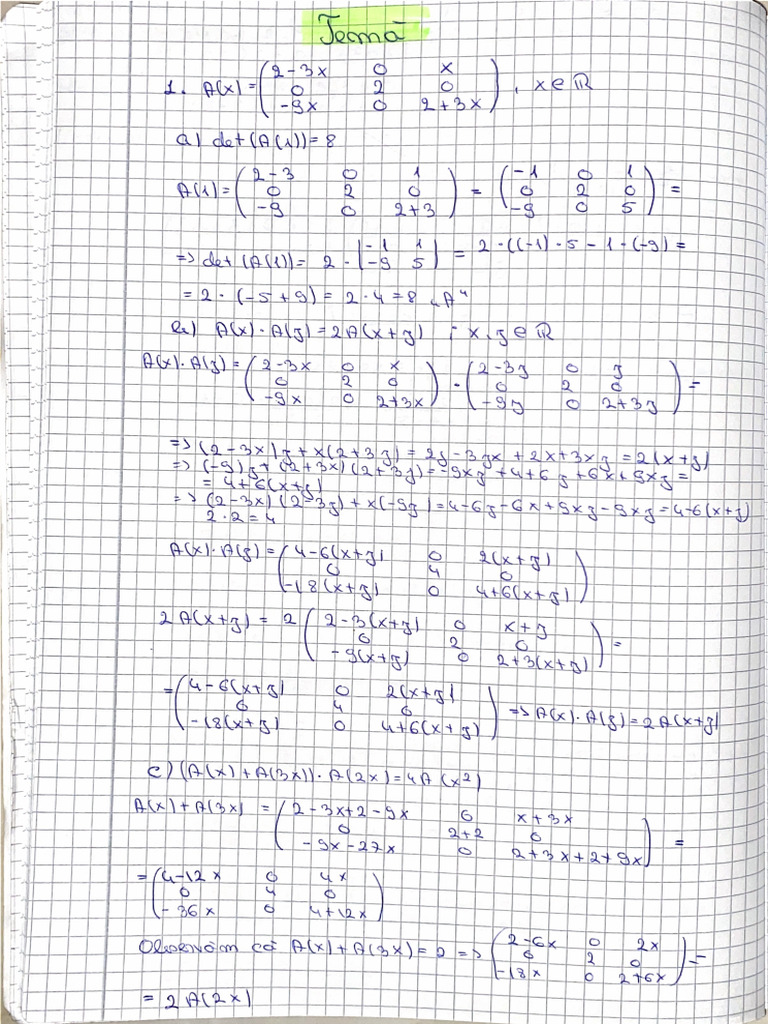 Temă
1. A(x) = (2-3x 0 x
0 2 0 , x ∈ ℝ
-9x 0 2+3x)
a) det(A(1)) = 8
A(1) = (2-3 0 1
0 2 0
-9 0 2+3) = (-1 0 1
0 2 0
-9 0 5) =
=> det(A(1)) = 2 · |-1 1
-9 5| = 2 · ((-1) · 5 - 1 · (-9) =
= 2 · (-5+9) = 2 · 4 = 8 „A"
b) A(x) · A(y) = 2A(x+y) ; x, y ∈ ℝ
A(x) · A(y) = (2-3x 0 x
0 2 0
-9x 0 2+3x) · (2-3y 0 y
0 2 0
-9y 0 2+3y) =
=> (2-3x)y + x(2+3y) = 2y - 3yx + 2x + 3xy = 2(x+y)
=> (-9)y + (2+3x)(2+3y) = -9xy + 4 + 6y + 6x + 9xy =
= 4+6(x+y)
=> (2-3x)(2-3y) + x(-9y) = 4-6y-6x+9xy-9xy = 4-6(x+y)
2 · 2 = 4
A(x) · A(y) = (4-6(x+y) 0 2(x+y)
0 4 0
-18(x+y) 0 4+6(x+y))
2A(x+y) = 2 (2-3(x+y) 0 x+y
0 2 0
-9(x+y) 0 2+3(x+y)) =
= (4-6(x+y) 0 2(x+y)
0 4 0
-18(x+y) 0 4+6(x+y)) => A(x) · A(y) = 2A(x+y)
c) (A(x) + A(3x)) · A(2x) = 4A(x²)
A(x) + A(3x) = (2-3x+2-9x 0 x+3x
0 2+2 0
-9x-27x 0 2+3x+2+9x) =
= (4-12x 0 4x
0 4 0
-36x 0 4+12x)
Observăm că A(x) + A(3x) = 2 => (2-6x 0 2x
0 2 0
-18x 0 2+6x) =
= 2A(2x)